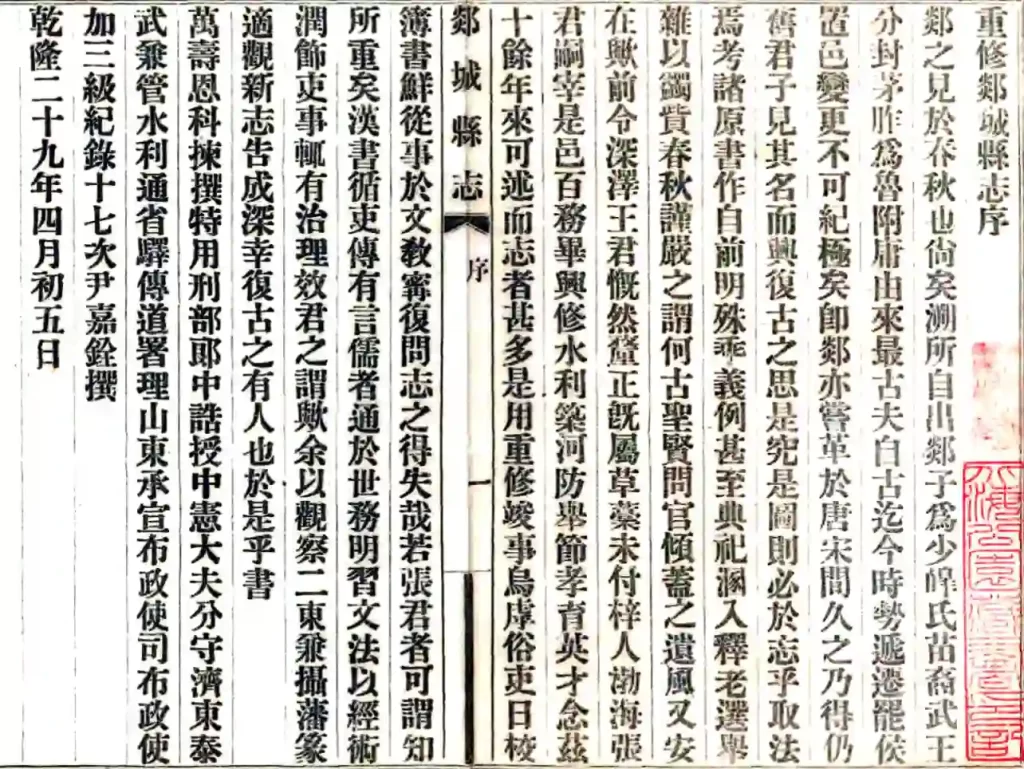 重修郯城縣志序
郯之見於春秋也尙矣溯所自出郯子爲少皥氏苗裔武王
分封茅胙爲魯附庸由來最古夫自古迄今時勢遞遷罷侯
置邑變更不可紀極矣卽郯亦嘗革於唐宋間久之乃得仍
舊君子見其名而興復古之思是究是圖則必於志乎取法
焉考諸原書作自前明殊乖義例甚至典祀溷入釋老選舉
雜以蠲貲春秋謹嚴之謂何古聖賢問官傾蓋之遺風又安
在歟前令深澤王君慨然釐正旣屬草藁未付梓人渤海張
君嗣宰是邑百務畢興修水利築河防舉節孝育英才念茲
十餘年來可述而志者甚多是用重修竣事烏虖俗吏日校
郯城縣志 序 一
簿書鮮從事於文敎寗復問志之得失哉若張君者可謂知
所重矣漢書循吏傳有言儒者通於世務明習文法以經術
潤飾吏事輒有治理效君之謂歟余以觀察二東兼攝藩篆
適觀新志吿成深幸復古之有人也於是乎書
萬壽恩科揀撰特用刑部郞中誥授中憲大夫分守濟東泰
武兼管水利通省驛傳道署理山東承宣布政使司布政使
加三級紀錄十七次尹嘉銓撰
乾隆二十九年四月初五日